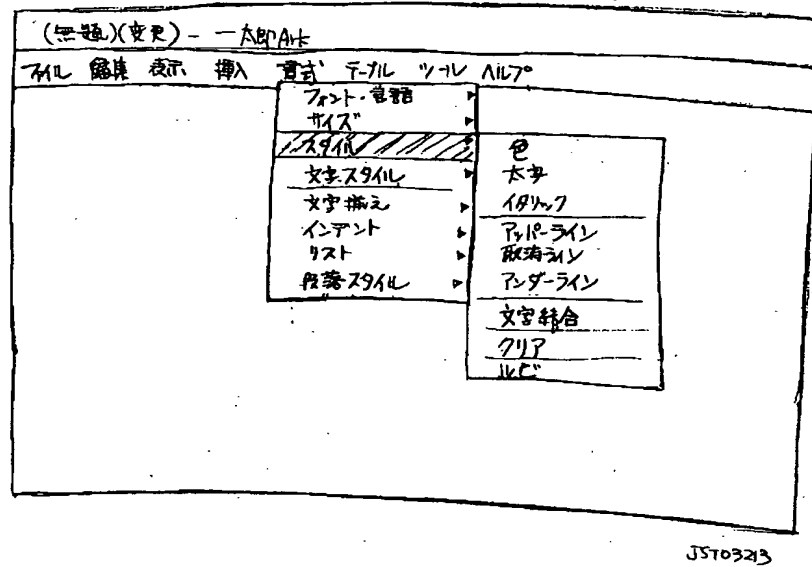 (無題)(変更) - 一太郎Ark
ファイル 編集 表示 挿入 書式 テーブル ツール ヘルプ
フォント・言語
サイズ
スタイル
文字スタイル
文字揃え
インデント
リスト
段落スタイル
色
太字
イタリック
アッパーライン
取消ライン
アンダーライン
文字結合
クリア
ルビ
JST03213